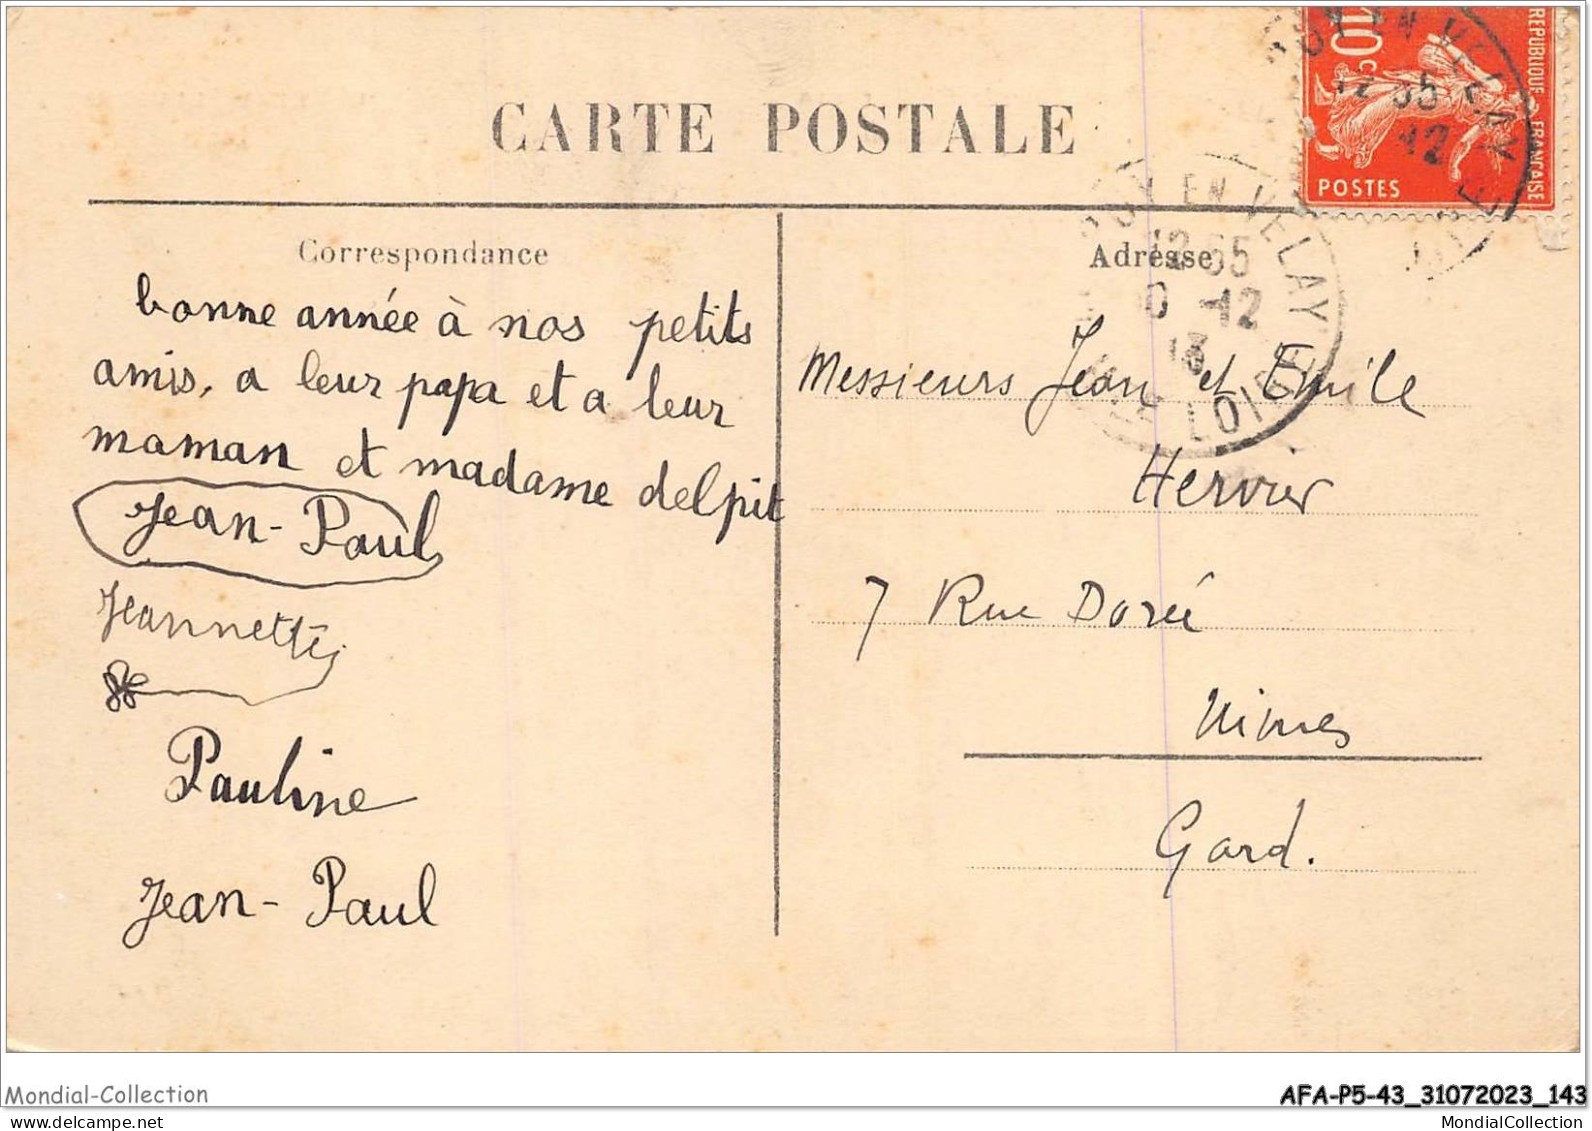 CARTE POSTALE
REPUBLIQUE FRANÇAISE
10c
POSTES
PUY EN VELAY
12 55
12
LOIRE
PUY EN VELAY
12 55
0 -12
13
LOIRE
Correspondance
bonne année à nos petits
amis, a leur papa et a leur
maman et madame delpit
Jean-Paul
Jeannette
Pauline
Jean-Paul
Adresse
Messieurs Jean et Emile
Hervier
7 Rue Dorée
Nimes
Gard.
Mondial-Collection
AFA-P5-43_31072023_143
MondialCollection